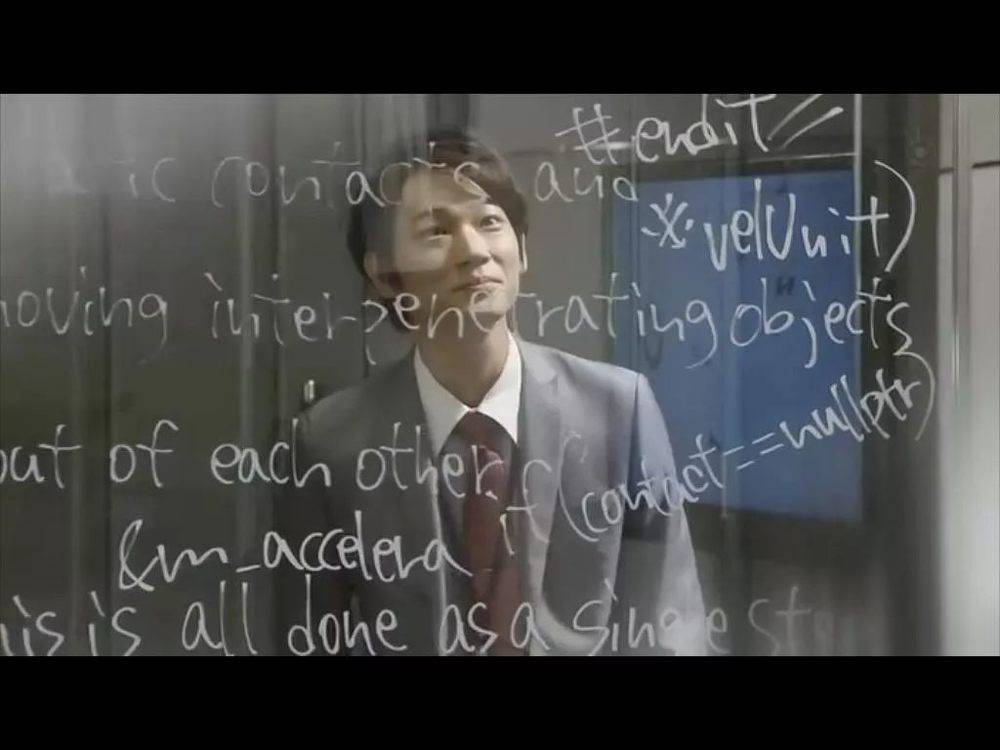 #endif
ic contacts and
velUnit)
moving interpenetrating objects
if(contact==nullptr)
out of each other.
&m_accelera
this is all done as a single